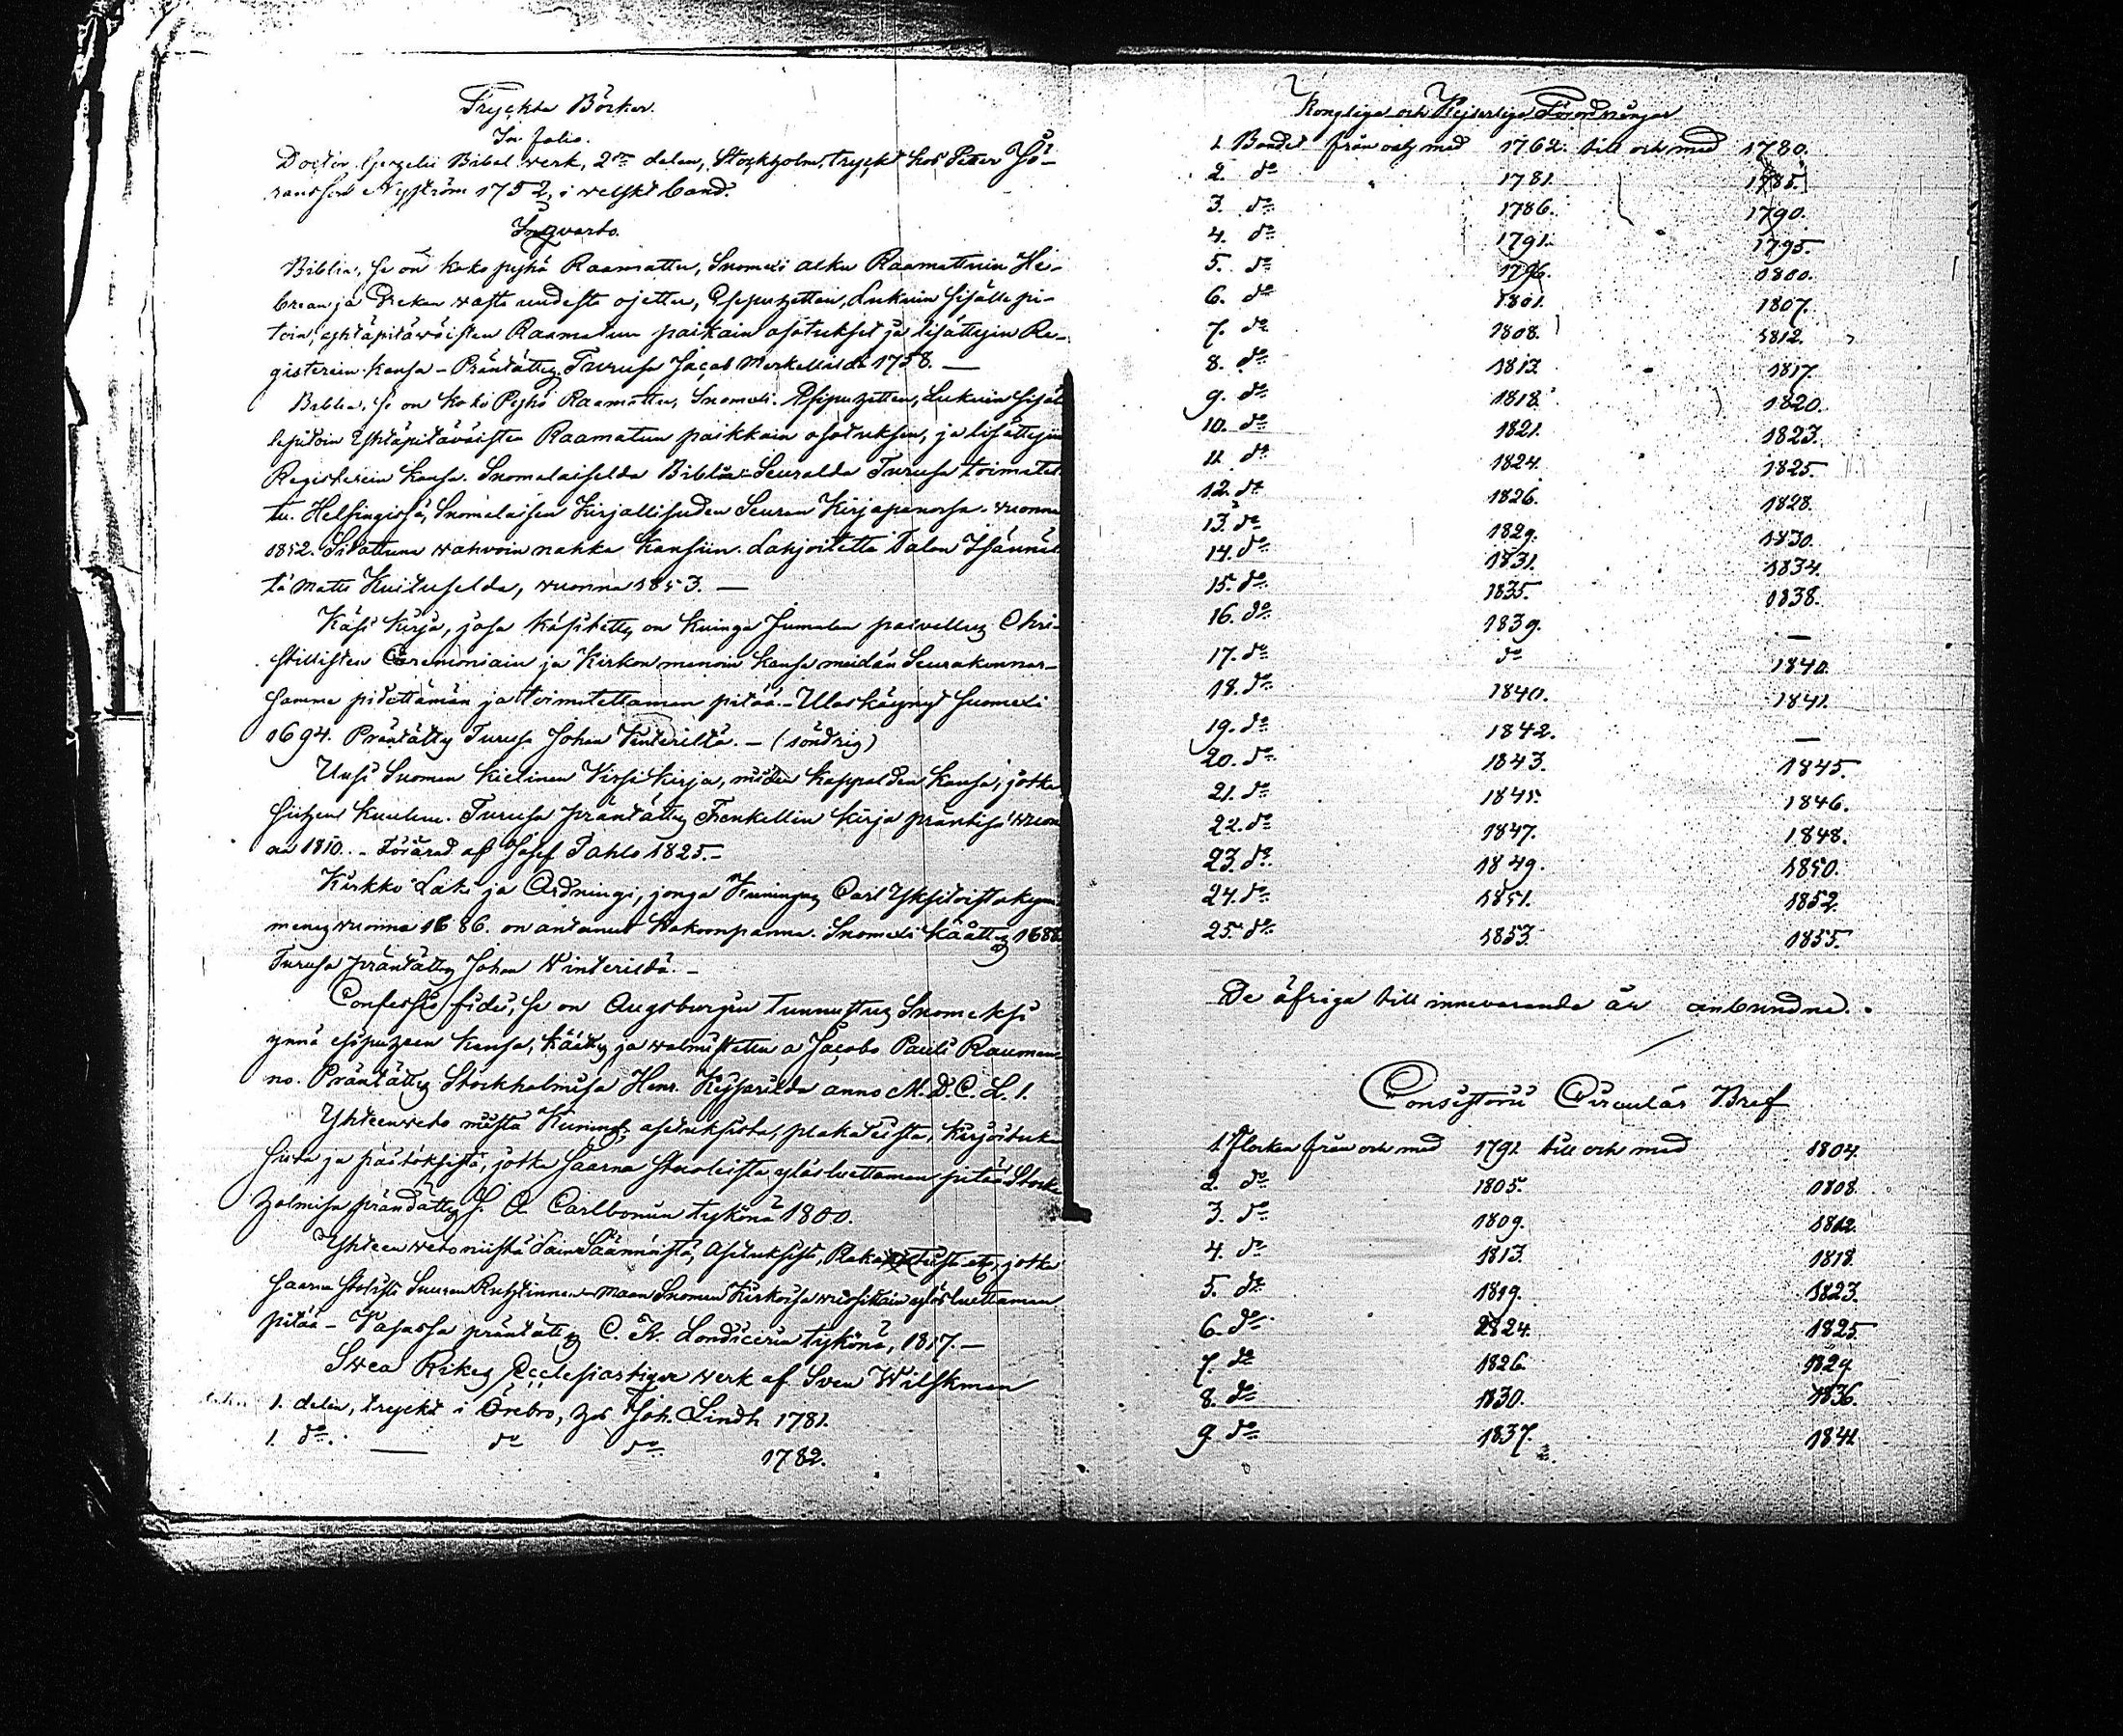 Tryckta Böcker.
In folio.
Doctor Gezelii Bibel werk, 2dra delen, Stockholm, tryckt hos Peter Jö-
ransson Nyström 1752, i welskt band.
In Qvarto.
Biblia, se on koko pyhä Raamattu, Suomexi alku Raamattuin He-
brean ja Grekan wasta uudesta ojettu, Esipuhetten, Lukuin sisälle pi-
toin, yhtäpitäwäisten Raamatun paikkain osotukset ja lisättyin Re-
gisterein kansa - Präntätty Turusa Jacob Merkellildä 1758. —
Biblia, se on koko Pyhä Raamattu, Suomexi. Esipuhetten, Lukuin sisäl
lepitoin yhtäpitäväisten Raamatun paikkain osotuksen, ja lisättyin
Registerein kansa. Suomalaiselda Biblia-Seuralda Turusa toimitet
tu. Helsingissä, Suomalaisen Kirjallisuden Seuran Kirjapanossa. vuonna
1852. Sidottuna wahvoin nahka kansiin. Lahjoitettu Talon Isännäl
tä Matti Kuituselda, vuonna 1853. —
Käsi Kirja, josa käsitetty on kuinga Jumalan palvellus Chri-
stillisten Ceremoniain ja Kirkon menoin kansa meidän Seurakunnas-
samme pidettämän ja toimitettaman pitää. - Ulos käynyt Suomexi
1694. Präntätty Turusa Johan Winterildä. - (söndrig)
Uusi Suomen kielinen Virsi kirja, niiden kappalden kansa, jotka
siihen kuuluu. Turusa präntätty Frenkellin kirja präntisä vuon
na 1810. - Förärad af Josef Pahlo 1825. -
Kirkko-Laki ja Ordningi, jonga Kuningas Carl Yksitoistakym
menes vuonna 1686. on andanut Kokoonpanna. Suomexi käätty 1688
Turusa präntätty Johan Winterildä. -
Confessio fidei, se on Augsburgin tunnustus Suomeksi
ynnä esipuheen kansa, käätty ja walmistettu a Jacobo Pauli Rauman-
no. Präntätty Stockholmisa Henr. Keysarilda anno M.D.C.L.I.
Yhteenveto niistä Kuningl. asetuksista, plakateista, kirjoituk
sista ja päätöksistä, jotka Saarna stuoleista ylösluettaman pitää Stock
holmisa präntätty J. A. Carlbomin tykönä 1800.
Yhteenveto niistä Lain Säännöistä, Asetuksista, Plakateista etc, jotka
Saarna Stolista Suuren Ruhtinnan-Maan Suomen Kirkoisa wuosittain ylösluettaman
pitää - Vasassa präntätty C. A. Londicerin tykönä, 1817. —
Swea Rikes Ecclesiastique werk af Sven Wilskman
1. delen, tryckt i Örebro, hos Joh. Lindh 1781.
1. do. — do do 1782.
Kongliga och Kejserliga Förordningar
1. Bandet från och med 1762. till och med 1780.
2. do 1781. 1785.
3. do 1786. 1790.
4. do 1791. 1795.
5. do 1796. 1800.
6. do 1801. 1807.
7. do 1808. 1812.
8. do 1813. 1817.
9. do 1818. 1820.
10. do 1821. 1823.
11. do 1824. 1825.
12. do 1826. 1828.
13. do 1829. 1830.
14. do 1831. 1834.
15. do 1835. 1838.
16. do 1839. —
17. do do 1840.
18. do 1840. 1841.
19. do 1842. —
20. do 1843. 1845.
21. do 1845. 1846.
22. do 1847. 1848.
23. do 1849. 1850.
24. do 1851. 1852.
25. do 1853. 1855.
De öfriga till innevarande år onbundna.
Consistorii Circulär Bref
1. Flocken från och med 1792 till och med 1804.
2. do 1805. 1808.
3. do 1809. 1812.
4. do 1813. 1818.
5. do 1819. 1823.
6. do 1824. 1825
7. do 1826 1829
8. do 1830. 1836.
9 do 1837. 1841